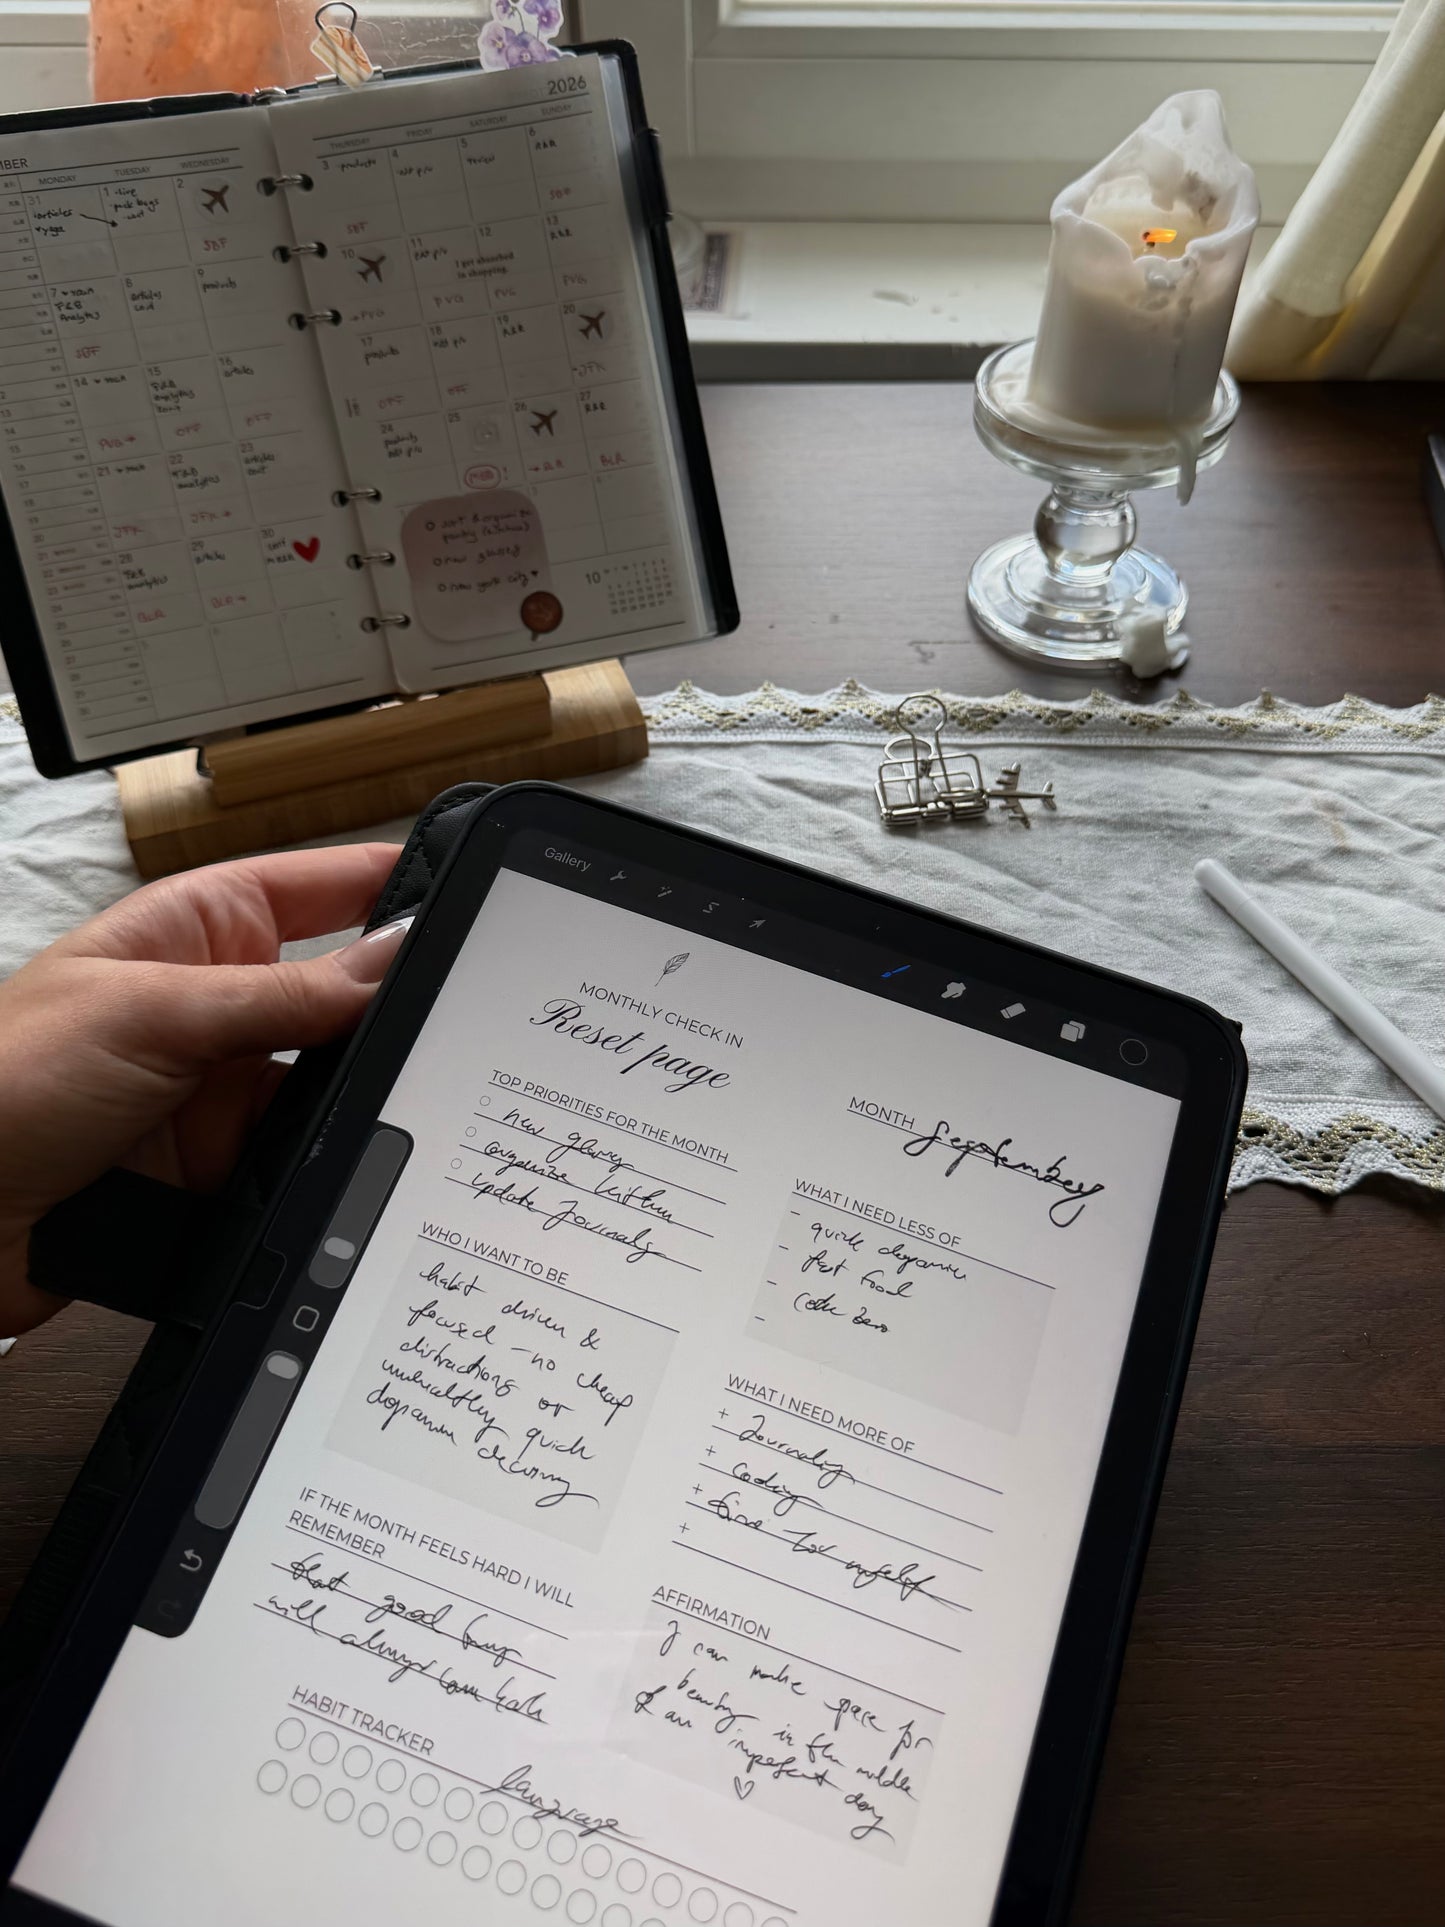 2026
MBER
MONDAY
TUESDAY
WEDNESDAY
THURSDAY
FRIDAY
SATURDAY
SUNDAY
31
articles
yoga
1
pack bags
2
SBF
3 products
SBF
4
5
review
6
R&R
SBF
7
F&B
Analytics
SBF
8
articles
9
products
10
PVG
11
PVG
12
I got absorbed
in shopping
PVG
13
R&R
PVG
14
PVG →
15
F&B
analytics
OFF
16
articles
OFF
17
products
OFF
18
OFF
19
R&R
20
JFK
21
JFK
22
F&B
analytics
JFK →
23
articles
24
products
25
MUC !
26
27
R&R
BLR
28
F&B
analytics
BLR
29
articles
BLR →
30
self
sort & organize
pantry (kitchen)
new glasses
new york city ♥
10
Gallery
MONTHLY CHECK IN
Reset page
MONTH September
TOP PRIORITIES FOR THE MONTH
new glasses
organize kitchen
update journals
WHO I WANT TO BE
habit driven &
focused - no cheap
distractions or
unhealthy quick
dopamine
IF THE MONTH FEELS HARD I WILL
REMEMBER
that good
will always come
HABIT TRACKER
language
WHAT I NEED LESS OF
- quick dopamine
- fast food
- Coke Zero
-
WHAT I NEED MORE OF
+ Journaling
+ coding
+ time for myself
+
AFFIRMATION
I can make space for
beauty in the middle
of an imperfect day
♡